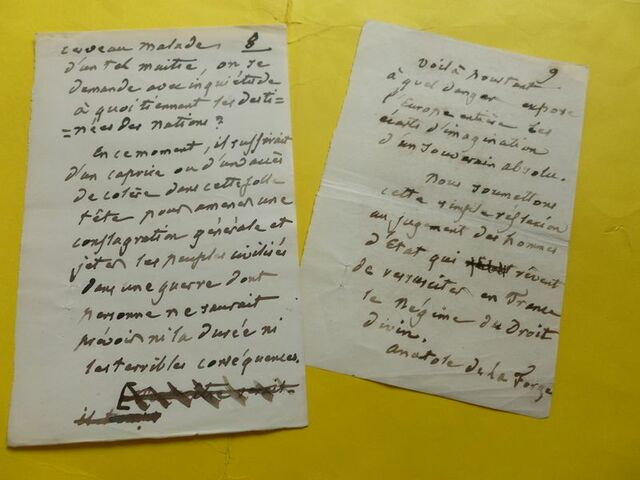 8
cerveau malade
d'un tel maître, on se
demande avec inquiétude
à quoi tiennent les desti-
-nées des nations?
En ce moment, il suffirait
d'un caprice ou d'un accès
de colère dans cette folle
tête pour amener une
conflagration générale et
jeter les peuples civilisés
dans une guerre dont
personne ne saurait
prévoir ni la durée ni
les terribles conséquences.
9
Voilà pourtant
à quel danger expose
l'Europe entière les
écarts d'imagination
d'un souverain absolu.
Nous soumettons
cette simple réflexion
au jugement des hommes
d'Etat qui rêvent
de ressusciter en France
le Régime du Droit
divin.
Anatole de La Forge